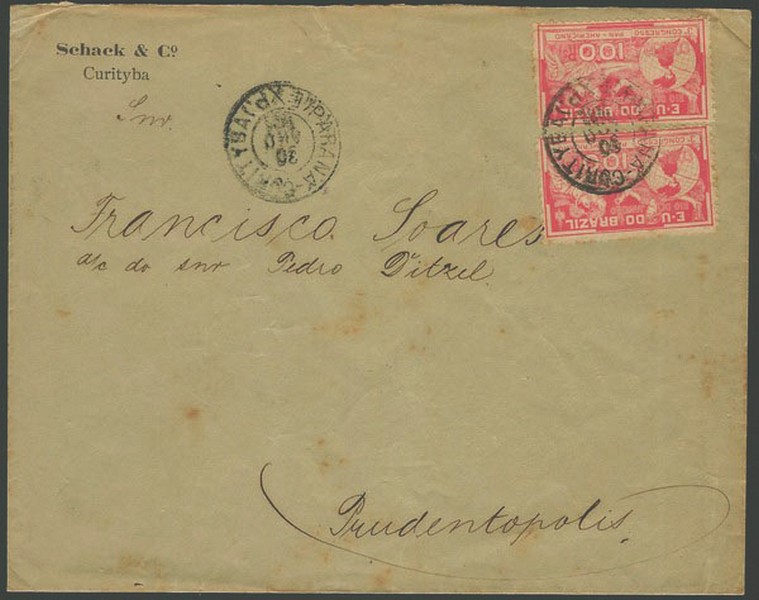 Schack & Cº
Curityba
Snr.
PARANÁ-CURITYBA
30
AGO
3º CONGRESSO
PAN-AMERICANO
100
E·U·DO BRAZIL
3º CONGRESSO
100
E·U·DO BRAZIL
RIO DE
PARANÁ-CURITYBA
30
Francisco Soares
a/c do snr Pedro Ditzel.
Prudentopolis